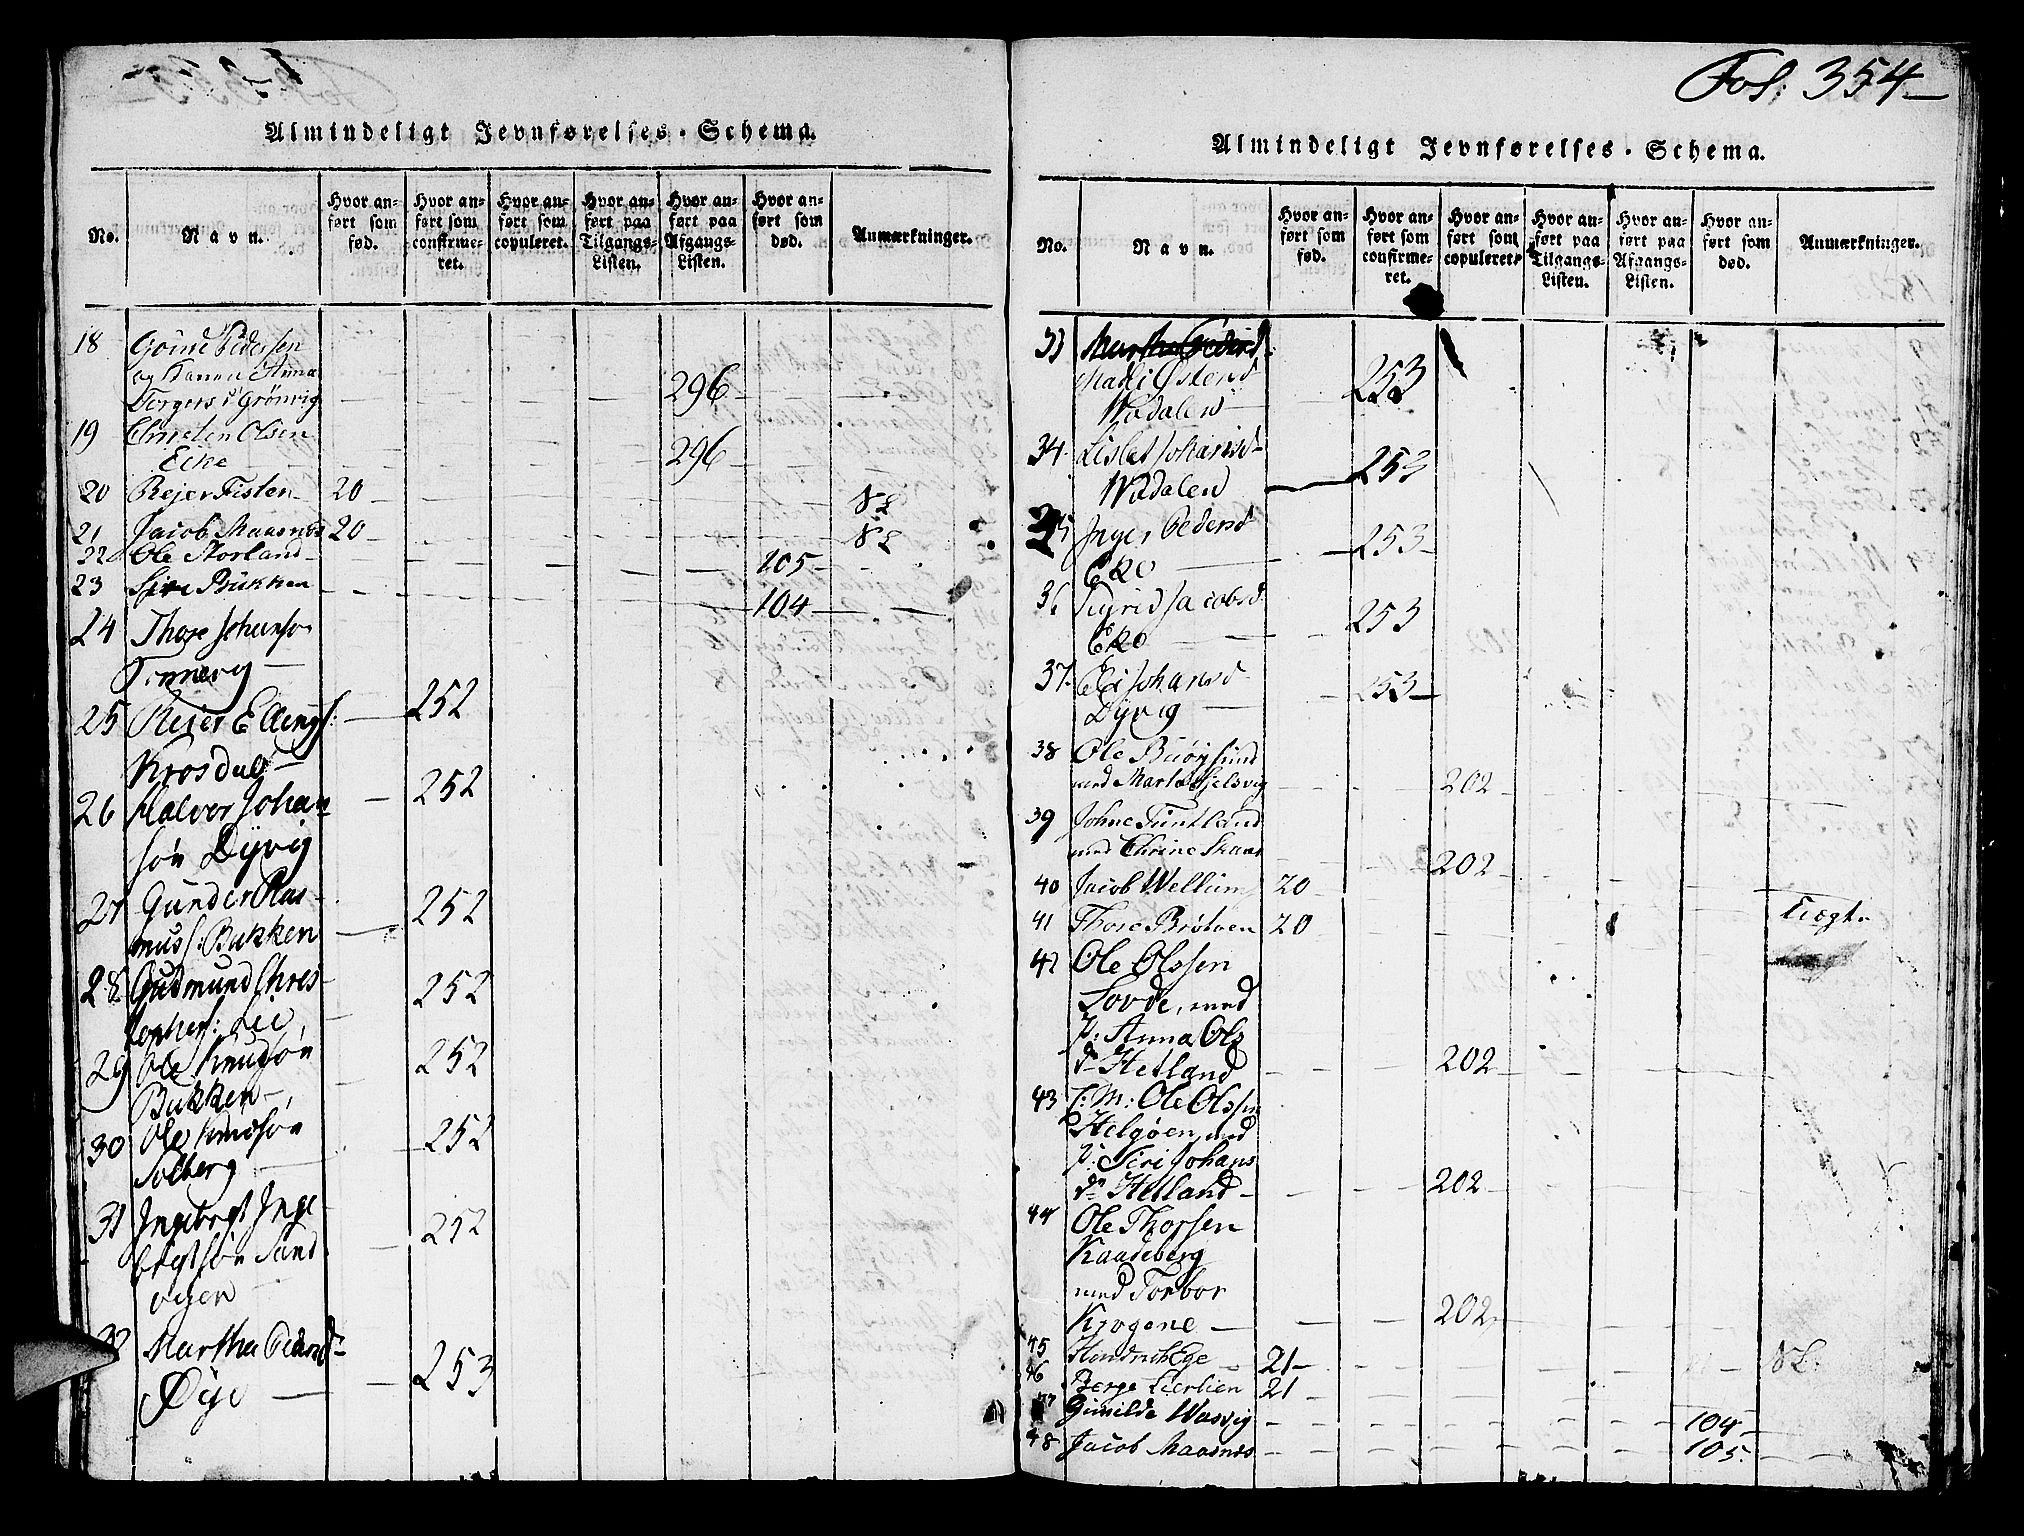 Almindeligt Jevnførelses-Schema.
No. Navn. Hvor anført som fød. Hvor anført som confirmeret. Hvor anført som copuleret. Hvor anført paa Tilgangs-Listen. Hvor anført paa Afgangs-Listen. Hvor anført som død. Anmærkninger.
18 Pedersen
og Karen Anna
Torgers i Grönvig 296
19 Christen Olsen
Eike 296
20 Rejer Fisten 20
21 Jacob Maasnes 20
22 Ole Storland 105
23 Siri Bukken 104
24 Thore Johanso
25 Rejer Ellings: 252
Krosdal
26 Halvor Johan 252
søn Dyvig
27 Gunder Ras- 252
mus: Bukken
28 Gudmund Chres 252
topher: Lie
29 Ole Knudsøn 252
Bukken
30 Ole Knudsøn 252
Solberg
31 Ingebrgt Inge 252
brigtsøn Sand
vigen
32 Martha Peders dr
Øye 253
Fol: 354
Almindeligt Jevnførelses-Schema.
No. Navn. Hvor anført som fød. Hvor anført som confirmeret. Hvor anført som copuleret. Hvor anført paa Tilgangs-Listen. Hvor anført paa Afgangs-Listen. Hvor anført som død. Anmærkninger.
33
Østensd 253
Wadalen
34 Lisbet Johansd 253
Wadalen
35 Inger Pedersd 253
Eke
36 Sigrid Jacobsd 253
Eke
37 Eli Johansd 253
Dyvig
38 Ole
med Marta Hjelsvig 202
39 Johne Tuntland
med Chrine 202
40 Jacob Wellum 20
41 Thore Brötven 20
42 Ole Olssen
Lovde, med
p: Anna Ols
dr Hetland 202
43 E: M: Ole Olssen
Helgøen, med
p: Siri Johans
dr Hetland 202
44 Ole Thorsen
Kaadeberg
med Torbor
Krogene 202
45 Hendrich Ege 21
46 Berge Lierlien 21
47 Gunilde Wasvig 104
48 Jacob Maasnes 105